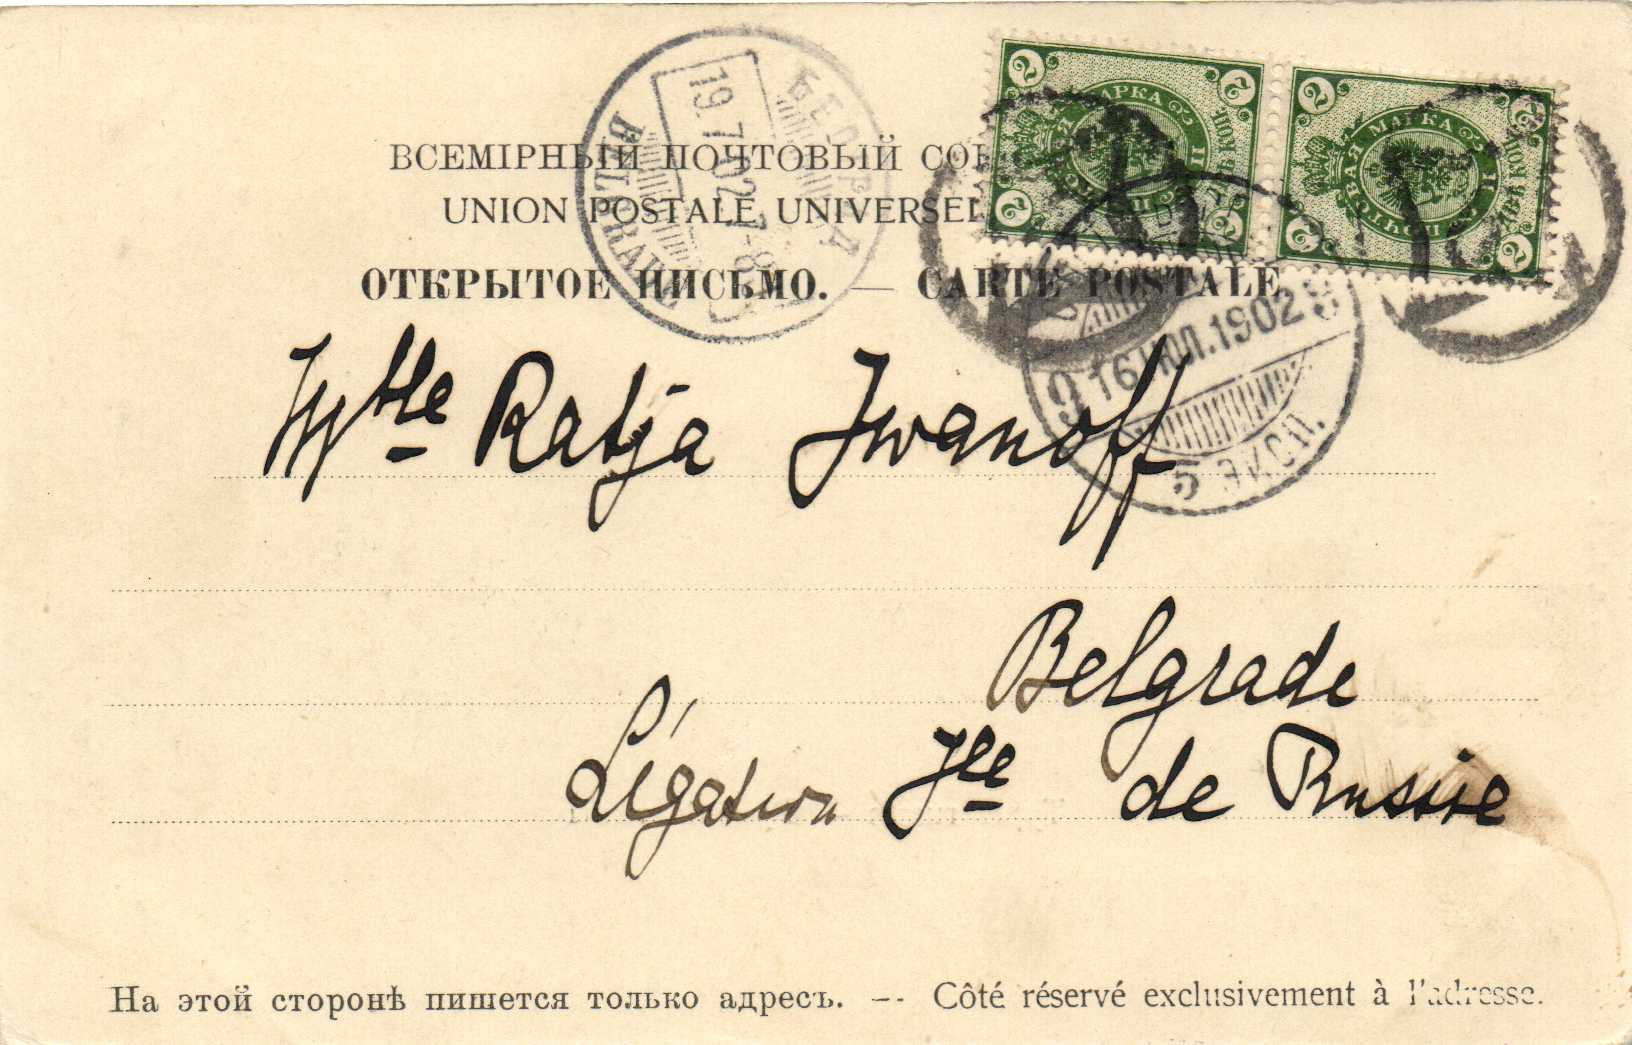 ВСЕМІРНЫЙ ПОЧТОВЫЙ
UNION POSTALE
ОТКРЫТОЕ ПИСЬМО. — CARTE POSTALE
БЕОГРАД
19.7.02.7-8
BELGRADE
МАРКА
2
2
2
ПОЧТОВАЯ МАРКА
2
2
2
9 16 ІЮЛ.1902 9
5 ЭКСП.
Mlle Katja Iwanoff
Belgrade
Légation Ile de Russie
На этой сторонѣ пишется только адресъ. -- Côté réservé exclusivement à l'adresse.